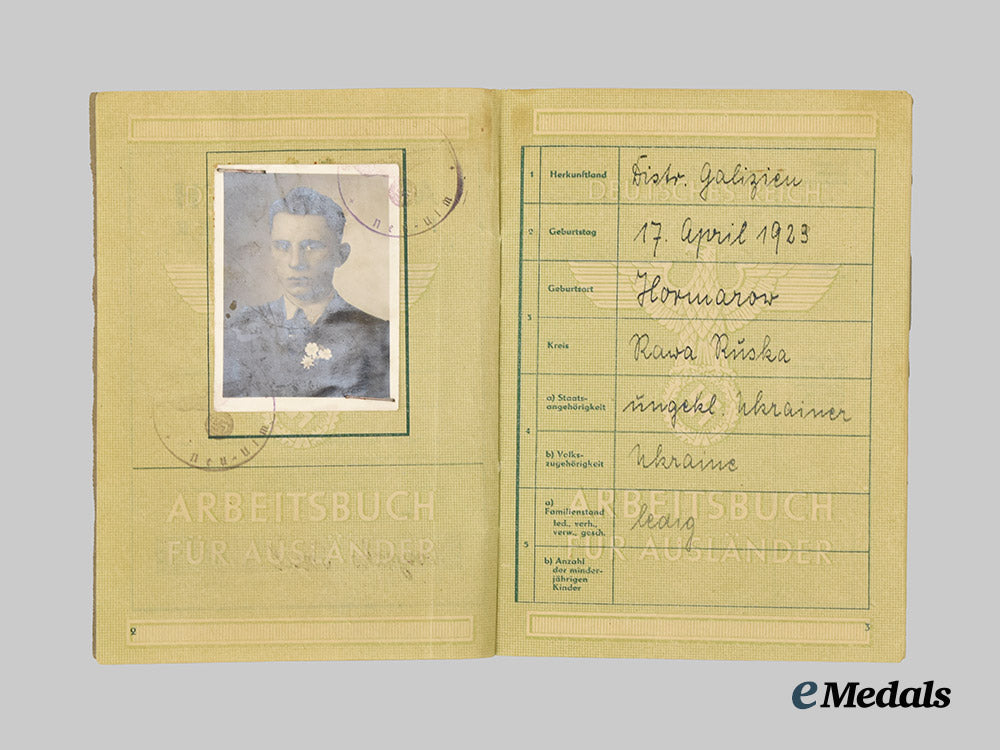 Neu-Ulm
Neu-Ulm
DEUTSCHES REICH
ARBEITSBUCH
FÜR AUSLÄNDER
2
1 Herkunftland Distr. Galizien
2 Geburtstag 17. April 1923
3 Geburtsort Hormarow
Kreis Rawa Ruska
4 a) Staats-
angehörigkeit ungekl. Ukrainer
b) Volks-
zugehörigkeit Ukraine
5 a)
Familienstand
led., verh.,
verw., gesch. ledig
b) Anzahl
der minder-
jährigen
Kinder
DEUTSCHES REICH
ARBEITSBUCH
FÜR AUSLÄNDER
3
eMedals